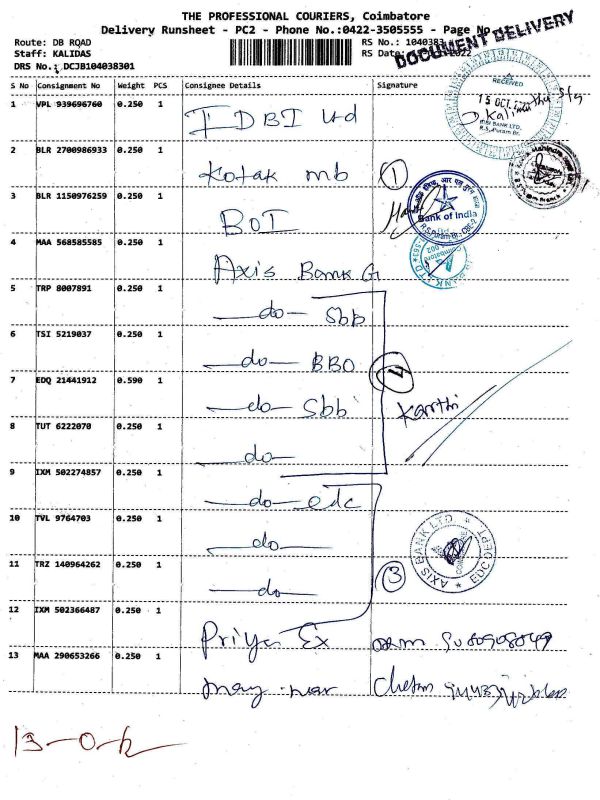 THE PROFESSIONAL COURIERS, Coimbatore
Delivery Runsheet - PC2 - Phone No.:0422-3505555 - Page No
DOCUMENT DELIVERY
Route: DB ROAD
RS No.: 1040383
Staff: KALIDAS
RS Date: 2022
DRS No.: DCJB104038301
S No Consignment No Weight PCS Consignee Details Signature
RECEIVED
15 OCT
IDBI BANK LTD.
R.S. Puram Br.
1 VPL 939696760 0.250 1 IDBI Ltd
2 BLR 2700986933 0.250 1 Kotak mb 1
3 BLR 1150976259 0.250 1 BOI
Bank of India
4 MAA 568585585 0.250 1 Axis Bank G
5 TRP 8007891 0.250 1 do Sbb
6 TSI 5219037 0.250 1 do BBO
7 EDQ 21441912 0.590 1 do Sbb Karthi
8 TUT 6222070 0.250 1 do
9 IXM 502274857 0.250 1 do edc
10 TVL 9764703 0.250 1 do
AXIS BANK LTD
EDC DEPT
11 TRZ 140964262 0.250 1 do 3
12 IXM 502366487 0.250 1 Priya Ex
13 MAA 290653266 0.250 1